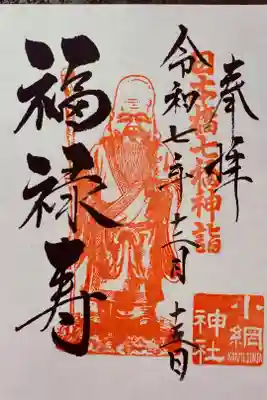 奉拝
日本橋七福神詣
令和七年十二月十五日
福禄寿
小網
神社
KOAMIJINJA